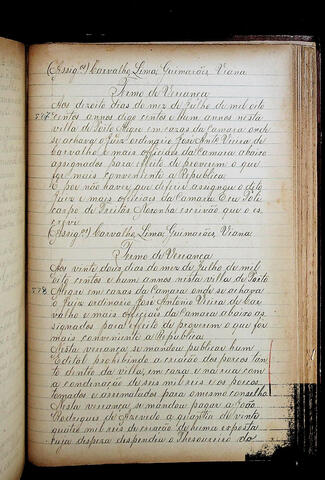 (Assigos) Carvalho, Lima, Guimarães, Viana
Termo de Veriança
Aos dezoito dias do mez de Julho de mil oito
centos annos digo centos e hum annos nesta
villa de Porto Alegre em cazas da Camara onde
se achava o Juiz ordinario José Anto Vieira de
Carvalho e mais officiais da Camara abaixo
assignados para effeito de proverem o que
for mais conveniente a Republica.
E por não haver que deferir assignou o dito
Juiz e mais officiais da Camara. Eu Poli
carpo de Freitas Noronha escrivão que o es
crevi.
(Assigos) Carvalho, Lima, Guimarães, Viana.
Termo de Veriança
Aos vinte dous dias do mez de Julho de mil
oito centos e hum annos nesta villa de Porto
Alegre em cazas da Camara onde se achava
o Juiz ordinario José Antonio Vieira de Car
valho e mais officiais da Camara abaixo as
signados para effeito de proverem o que for
mais conveniente a Republica.
Nesta veriança se mandou publicar hum
Edital prohibindo a criação dos porcos tan
to dentro da villa, em caza e na rua com
a condinação de seis mil reis e os porcos
tomados e arrematados para o mesmo conselho
Nesta veriança se mandou pagar a João
Rodrigues de Azevedo a quantia de vinte
quatro mil reis de criação de huma exposta
cuja despeza despendeu o Thesoureiro da